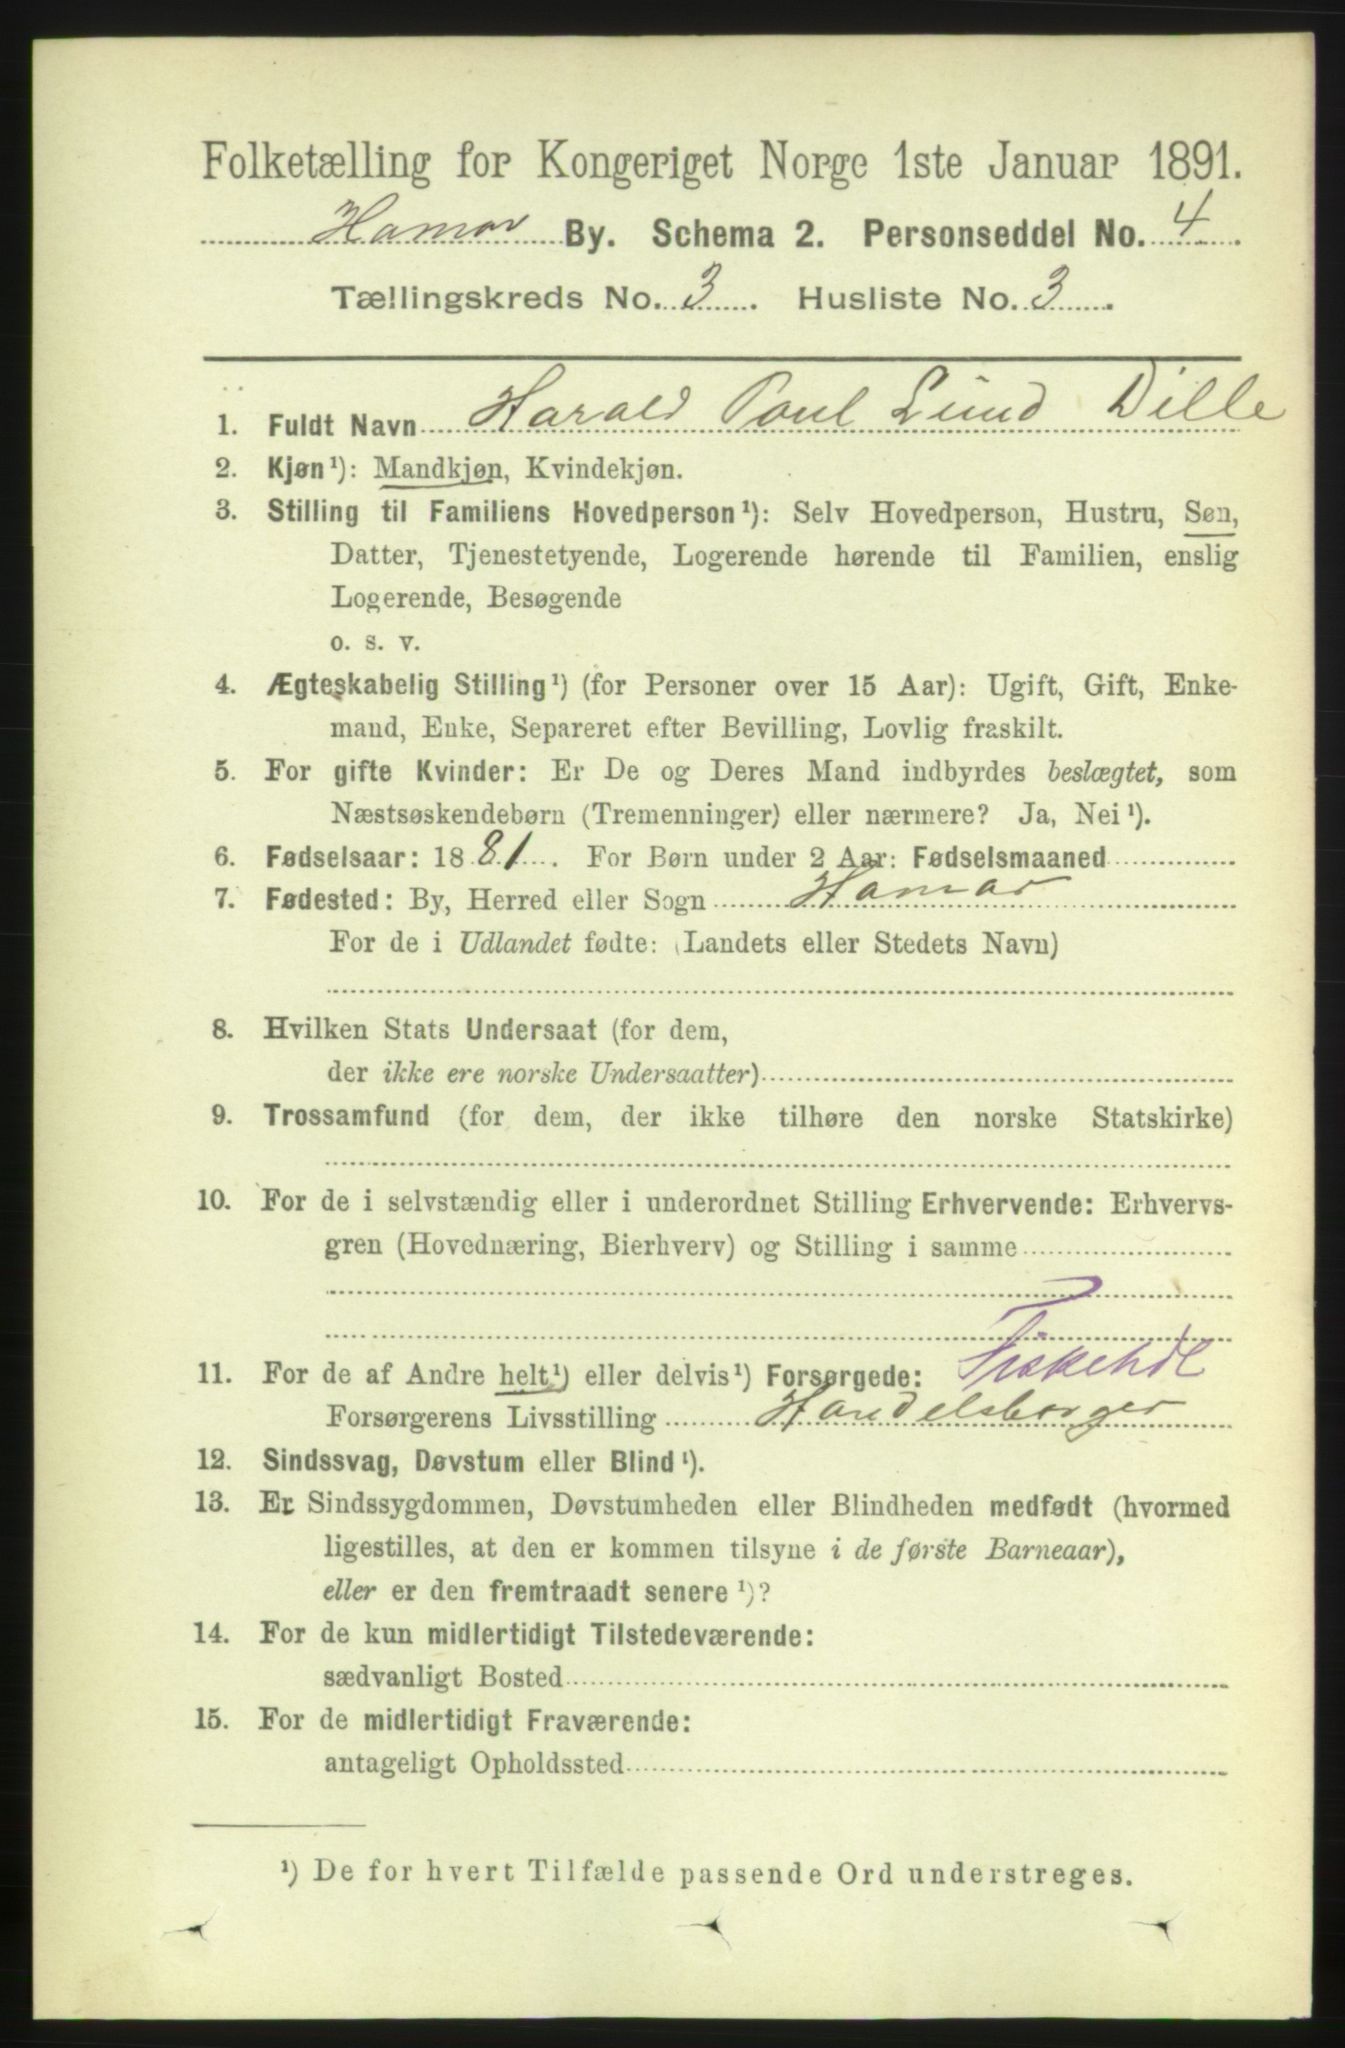 Folketælling for Kongeriget Norge 1ste Januar 1891.
Hamar By. Schema 2. Personseddel No. 4
Tællingskreds No. 3. Husliste No. 3.
1. Fuldt Navn Harald Poul Lund Dille
2. Kjøn¹): Mandkjøn, Kvindekjøn.
3. Stilling til Familiens Hovedperson¹): Selv Hovedperson, Hustru, Søn,
Datter, Tjenestetyende, Logerende hørende til Familien, enslig
Logerende, Besøgende
o. s. v.
4. Ægteskabelig Stilling¹) (for Personer over 15 Aar): Ugift, Gift, Enke-
mand, Enke, Separeret efter Bevilling, Lovlig fraskilt.
5. For gifte Kvinder: Er De og Deres Mand indbyrdes beslægtet, som
Næstsøskendebørn (Tremenninger) eller nærmere? Ja, Nei¹).
6. Fødselsaar: 1881. For Børn under 2 Aar: Fødselsmaaned
7. Fødested: By, Herred eller Sogn Hamar
For de i Udlandet fødte: (Landets eller Stedets Navn)
8. Hvilken Stats Undersaat (for dem,
der ikke ere norske Undersaatter)
9. Trossamfund (for dem, der ikke tilhøre den norske Statskirke)
10. For de i selvstændig eller i underordnet Stilling Erhvervende: Erhvervs-
gren (Hovednæring, Bierhverv) og Stilling i samme
11. For de af Andre helt¹) eller delvis¹) Forsørgede: Fiskehdl
Forsørgerens Livsstilling Handelsborger
12. Sindssvag, Døvstum eller Blind¹).
13. Er Sindssygdommen, Døvstumheden eller Blindheden medfødt (hvormed
ligestilles, at den er kommen tilsyne i de første Barneaar),
eller er den fremtraadt senere¹)?
14. For de kun midlertidigt Tilstedeværende:
sædvanligt Bosted
15. For de midlertidigt Fraværende:
antageligt Opholdssted
¹) De for hvert Tilfælde passende Ord understreges.